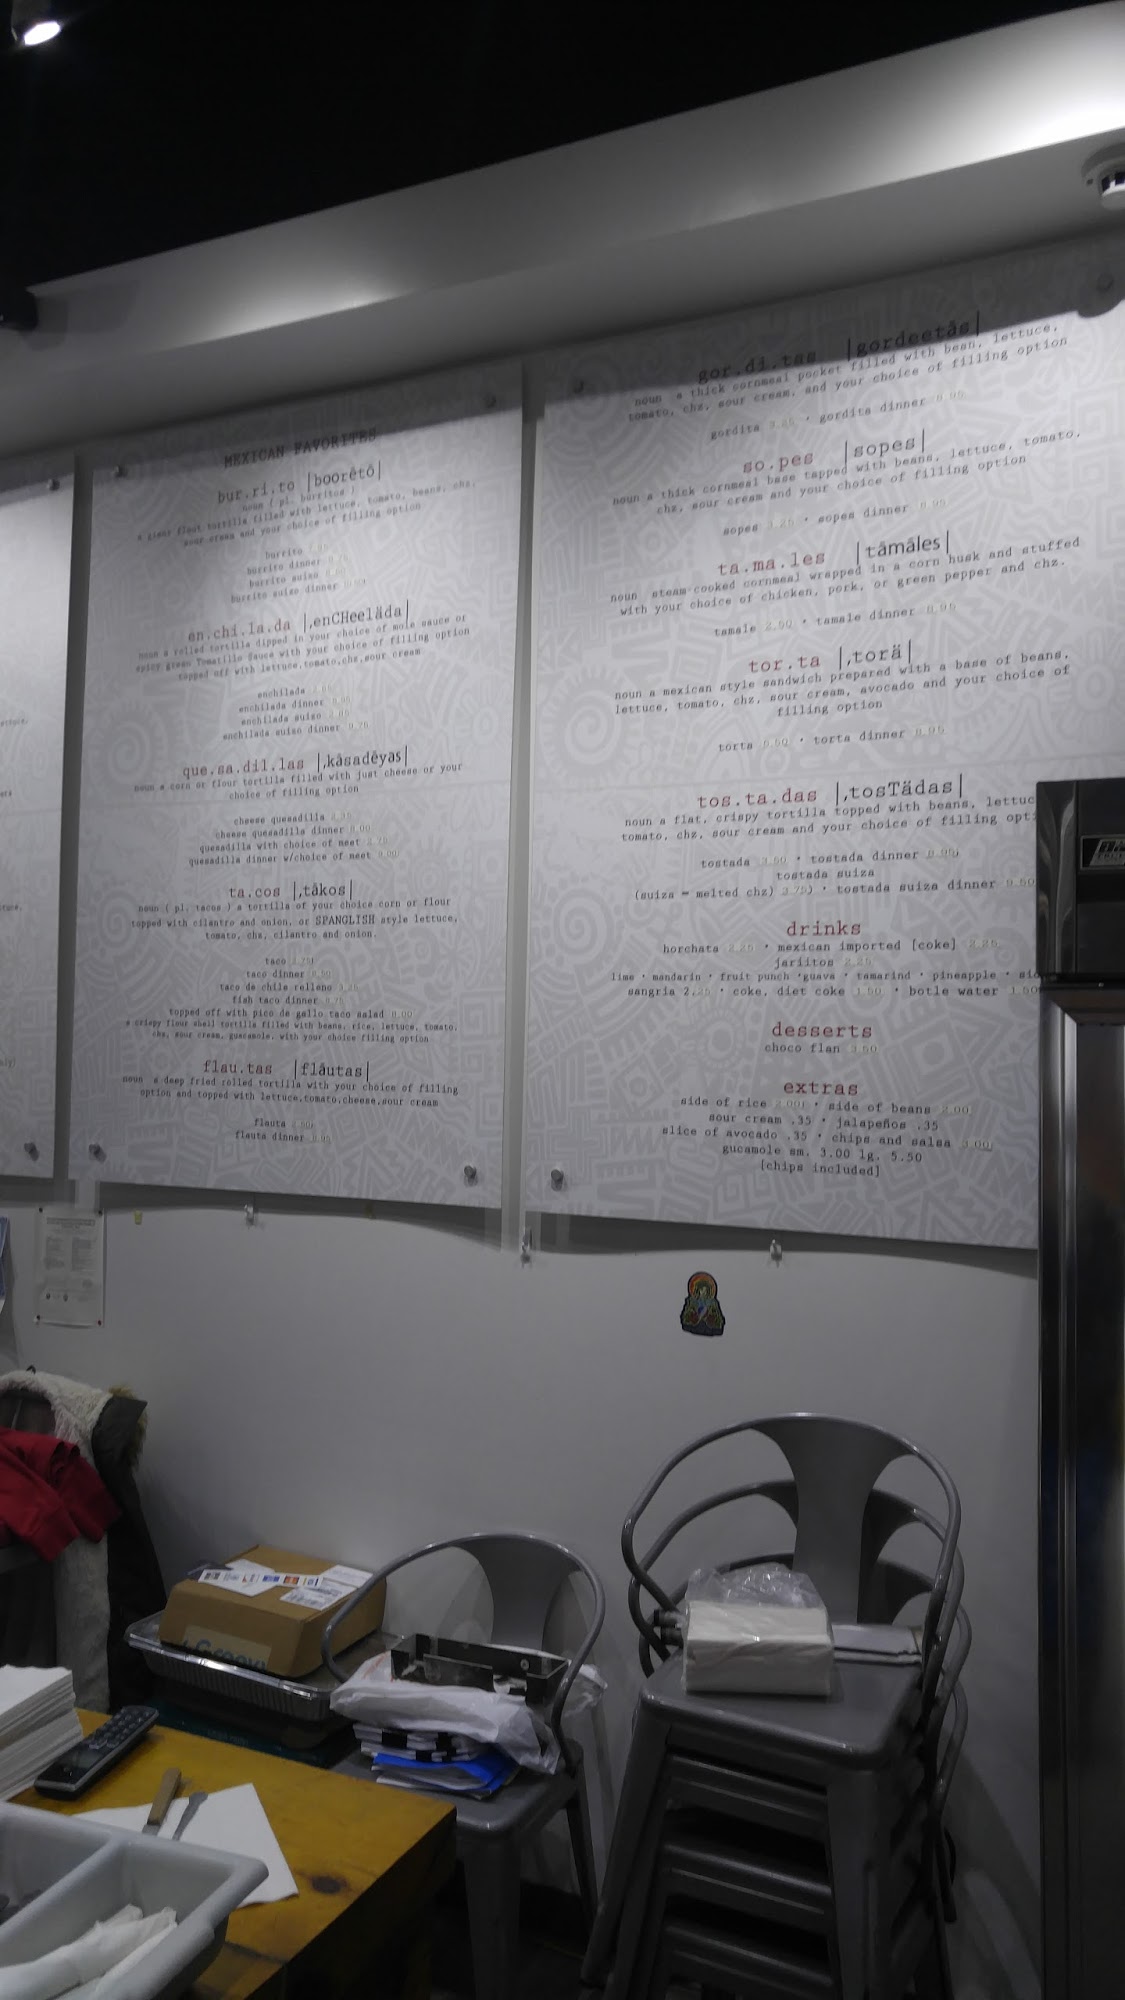 MEXICAN FAVORITES
bur.ri.to |boorētō|
noun ( pl. burritos )
a giant flout tortilla filled with lettuce, tomato, beans, chz,
sour cream and your choice of filling option
burrito
burrito dinner
burrito suizo
burrito suizo dinner
en.chi.la.da |,enCHeeläda|
noun a rolled tortilla dipped in your choice of mole sauce or
spicy green Tomatillo Sauce with your choice of filling option
topped off with lettuce,tomato,chz,sour cream
enchilada
enchilada dinner
enchilada suizo
enchilada suizo dinner
que.sa.dil.las |,kâsadēyas|
noun a corn or flour tortilla filled with just cheese or your
choice of filling option
cheese quesadilla
cheese quesadilla dinner
quesadilla with choice of meet
quesadilla dinner w/choice of meet
ta.cos |,tâkos|
noun ( pl. tacos ) a tortilla of your choice corn or flour
topped with cilantro and onion, or SPANGLISH style lettuce,
tomato, chz, cilantro and onion.
taco
taco dinner
taco de chile relleno 3.25
fish taco dinner
topped off with pico de gallo taco salad 8.00
a crispy flour shell tortilla filled with beans, rice, lettuce, tomato,
chz, sour cream, guacamole, with your choice filling option
flau.tas |flâutas|
noun a deep fried rolled tortilla with your choice of filling
option and topped with lettuce,tomato,cheese,sour cream
flauta
flauta dinner
gor.di.tas |gordeetâs|
noun a thick cornmeal pocket filled with bean, lettuce,
tomato, chz, sour cream, and your choice of filling option
gordita • gordita dinner
so.pes |sopes|
noun a thick cornmeal base tapped with beans, lettuce, tomato,
chz, sour cream and your choice of filling option
sopes 3.25 • sopes dinner
ta.ma.les |tâmâles|
noun steam-cooked cornmeal wrapped in a corn husk and stuffed
with your choice of chicken, pork, or green pepper and chz.
tamale 2.50 • tamale dinner 8.95
tor.ta |,torä|
noun a mexican style sandwich prepared with a base of beans,
lettuce, tomato, chz, sour cream, avocado and your choice of
filling option
torta • torta dinner
tos.ta.das |,tosTädas|
noun a flat, crispy tortilla topped with beans, lettuc
tomato, chz, sour cream and your choice of filling opti
tostada 3.50 • tostada dinner
tostada suiza
(suiza = melted chz) 3.75) • tostada suiza dinner 9.50
drinks
horchata 2.25 • mexican imported [coke] 2.25
jariitos 2.25
lime • mandarin • fruit punch •guava • tamarind • pineapple •
sangria 2.25 • coke, diet coke 1.50 • botle water 1.50
desserts
choco flan 3.50
extras
side of rice 2.00 • side of beans 2.00
sour cream .35 • jalapeños .35
slice of avocado .35 • chips and salsa 3.00
gucamole sm. 3.00 lg. 5.50
[chips included]